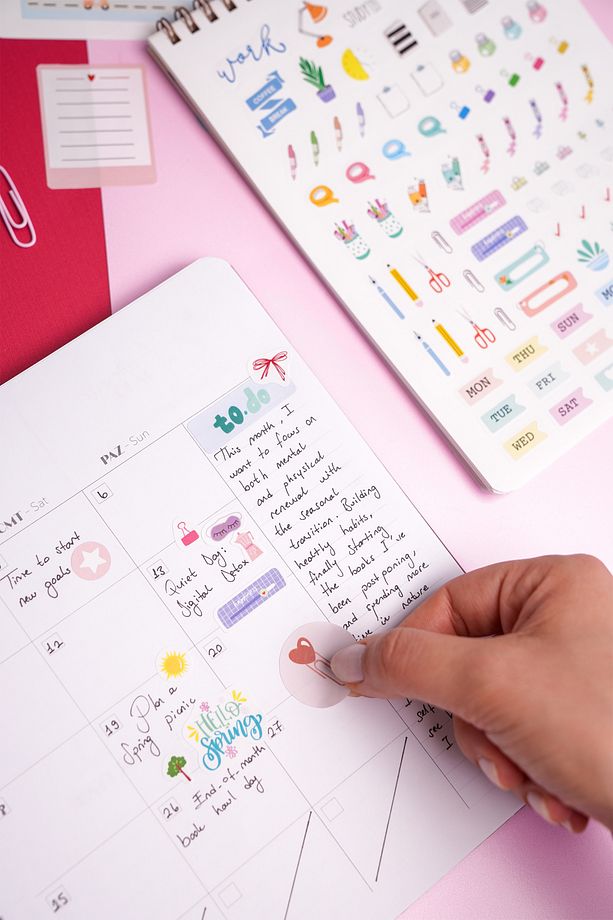 work
COFFEE
BREAK
MON
TUE
WED
THU
FRI
SAT
SUN
CMT - Sat
PAZ - Sun
to do
This month, I
want to focus on
both mental
and physical
renewal with
the seasonal
transition. Building
healthy habits,
finally starting
the books I've
been postponing,
and spending more
in nature
6
Time to start
new goals
12
13
Quiet Day:
Digital Detox
19
Plan a
Spring picnic
HELLO
Spring
20
26
End-of-month
book haul day
27
15